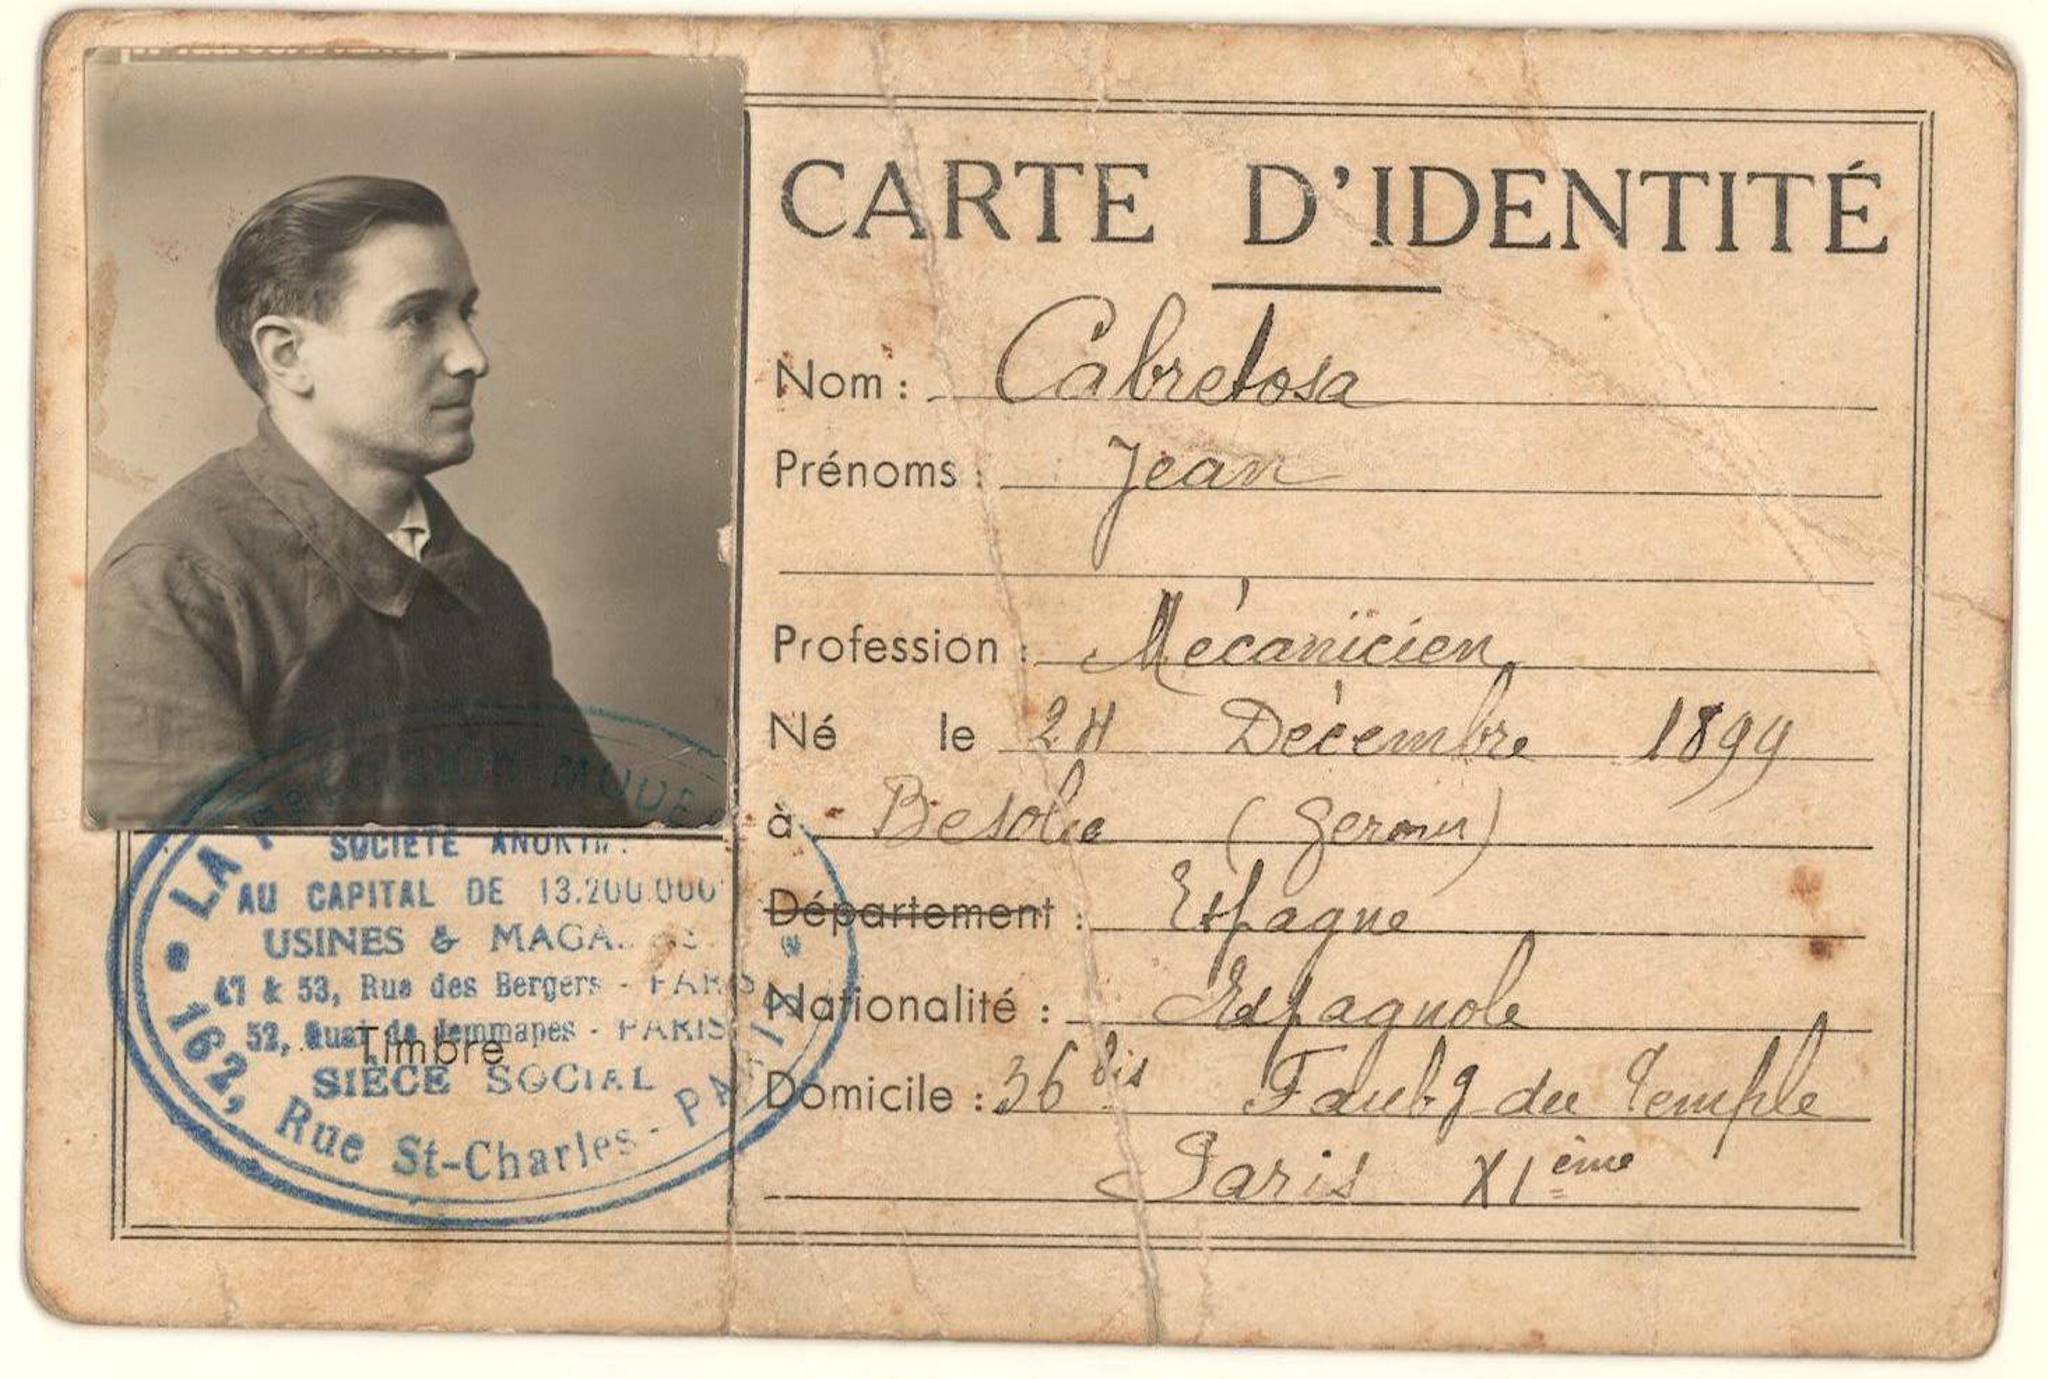 CARTE D'IDENTITÉ
Nom : Cabretosa
Prénoms : Jean
Profession : Mécanicien
Né le 24 Décembre 1899
à
Département : Espagne
Nationalité : Espagnole
Domicile : 36 bis Faubg du Temple
Paris XIème
LA
SOCIÉTÉ
AU CAPITAL DE 13.200.000
USINES &
47 & 53, Rue des Bergers - PARIS
52, Quai de Jemmapes - PARIS
Timbre
SIÈGE SOCIAL
162, Rue St-Charles - PARIS